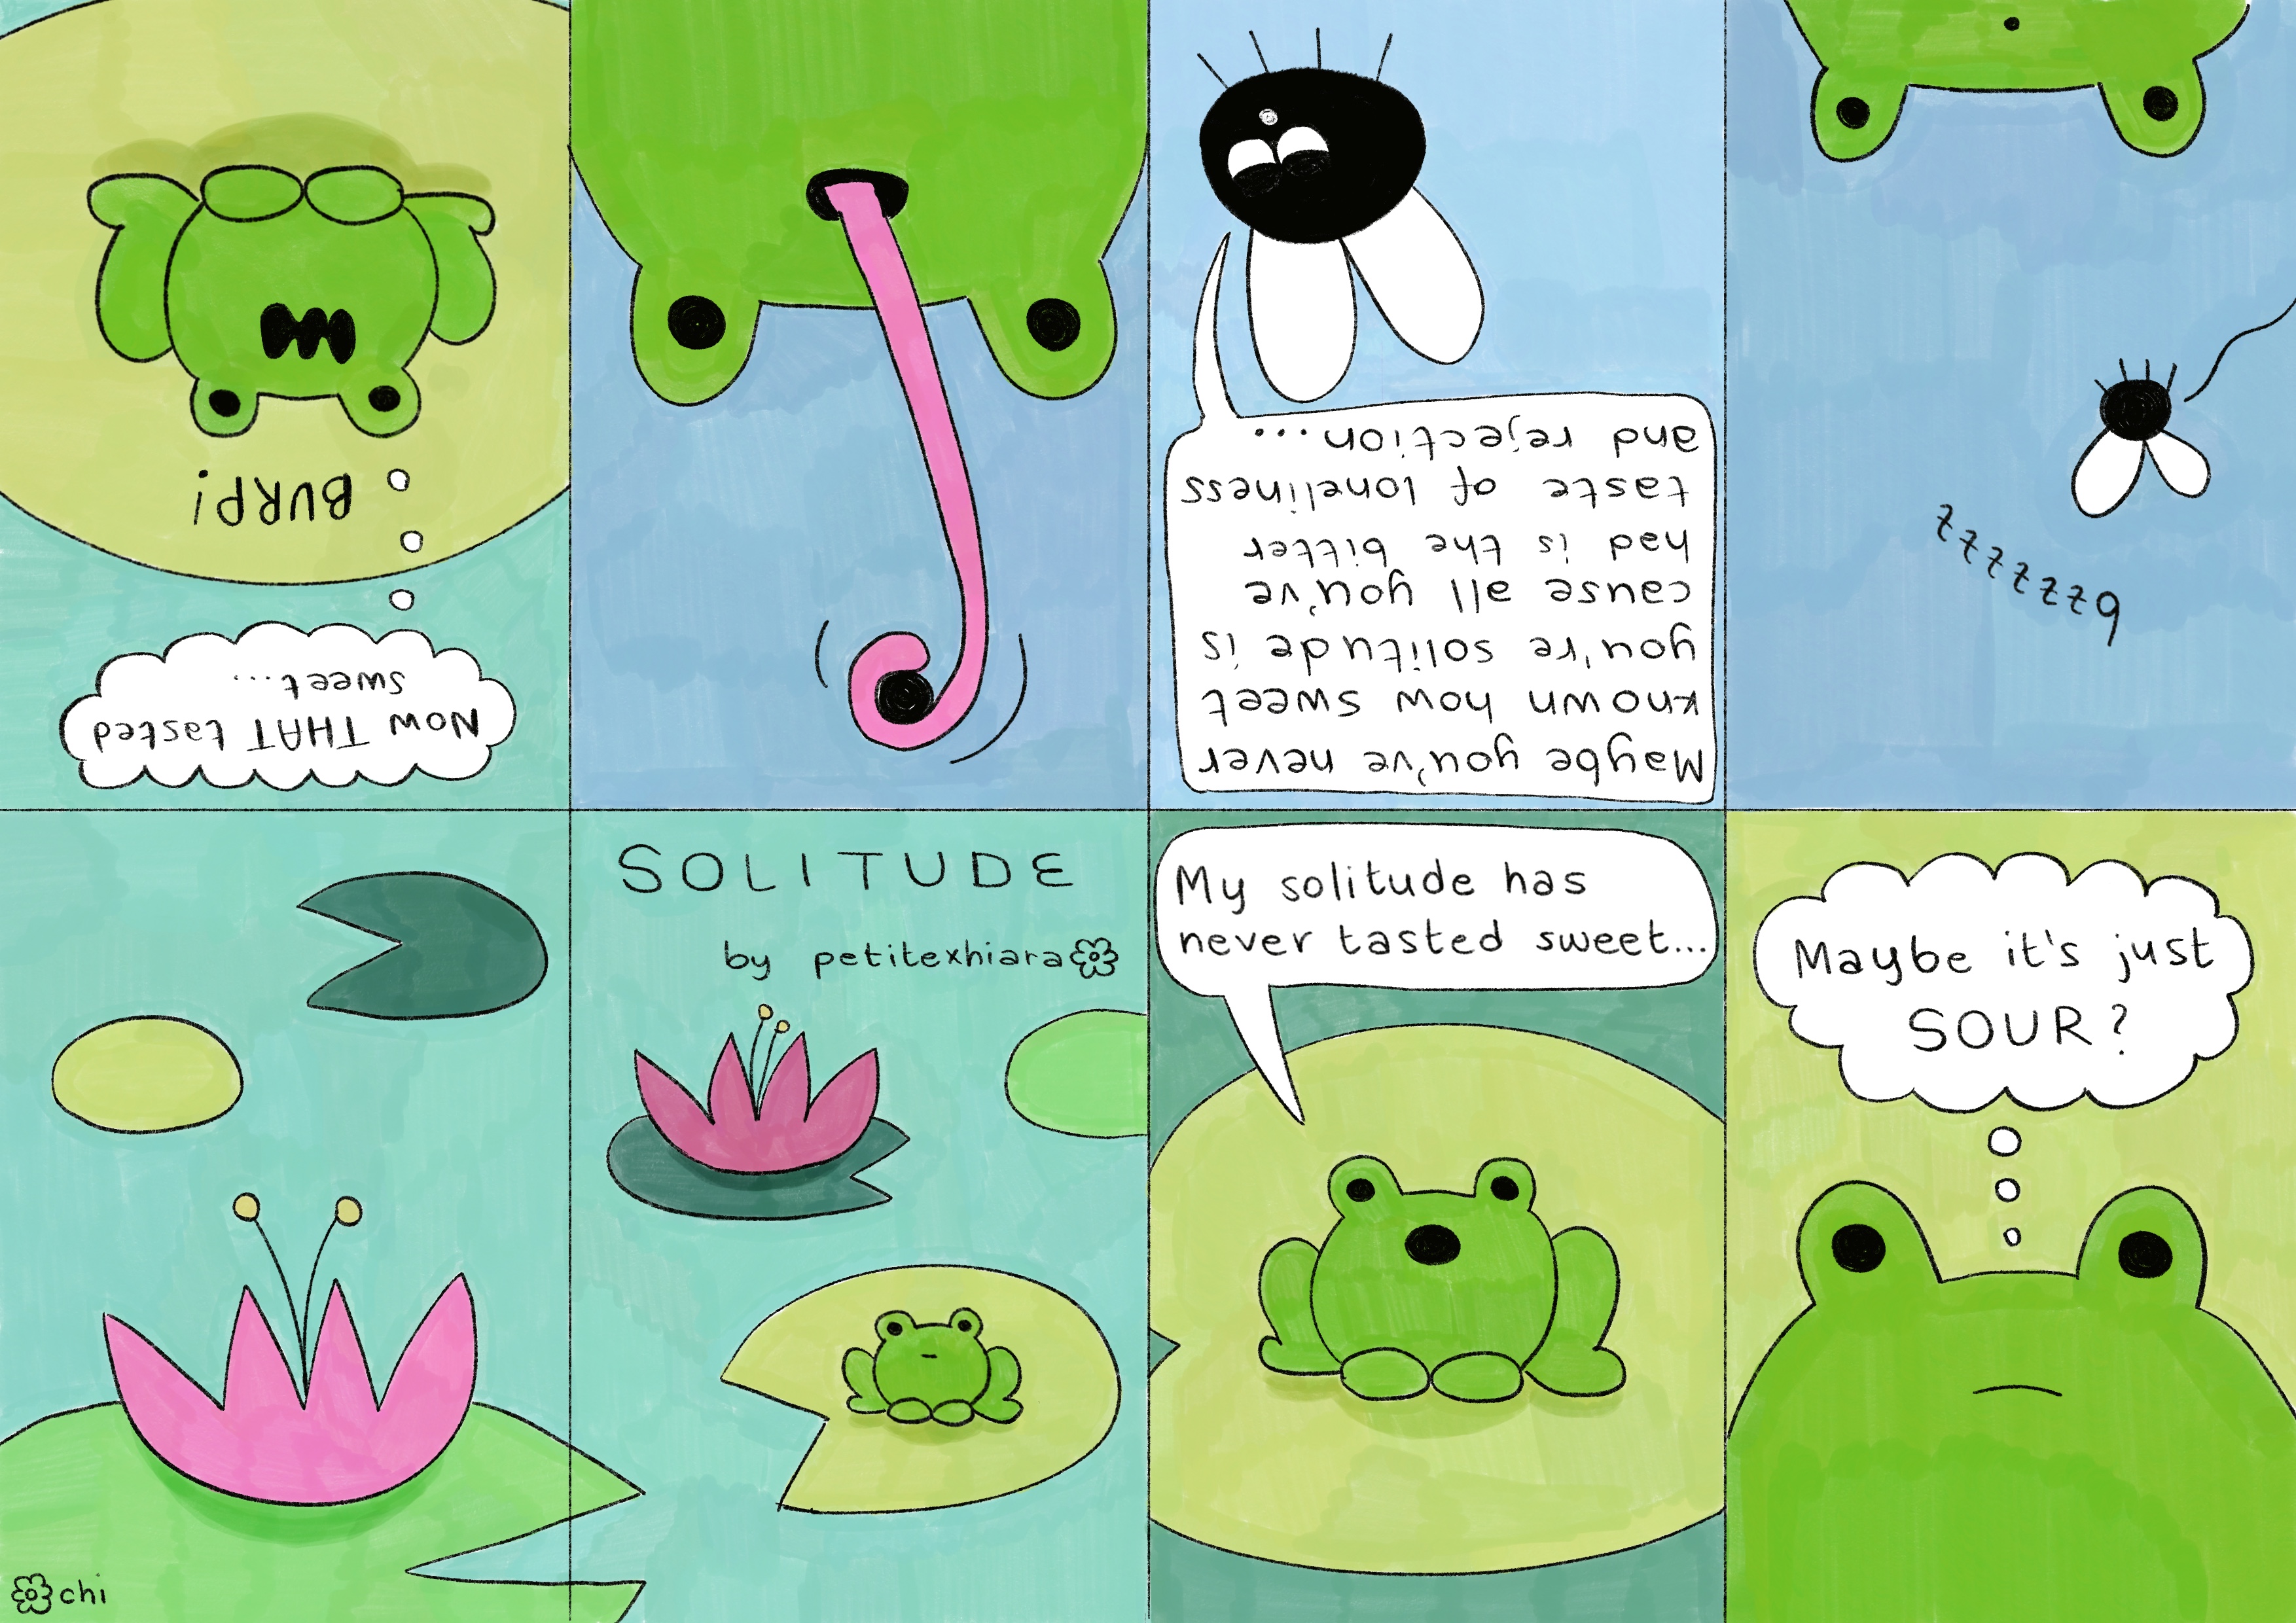 SOLITUDE
by petitexhiara
My solitude has
never tasted sweet...
Maybe it's just
SOUR?
bzzzzzz
Maybe you've never
known how sweet
you're solitude is
cause all you've
had is the bitter
taste of loneliness
and rejection...
Now THAT tasted
sweet...
BURP!
chi